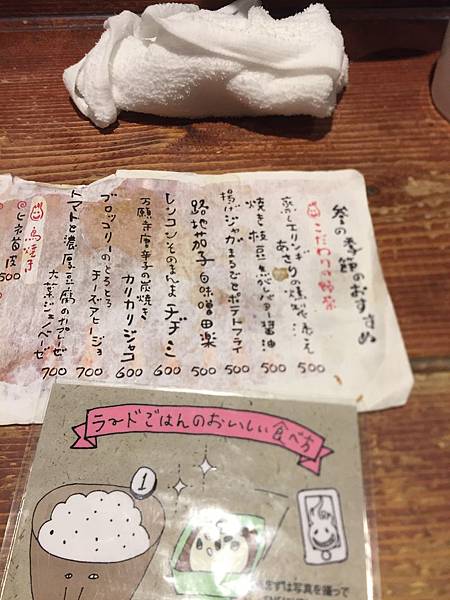 の季節のおすすめ
こだわりの野菜
あさりの
500
焼き枝豆 焦がしバター醤油
500
揚げジャガまるごとポテトフライ
500
路地茄子 白味噌田楽
500
レンコンそのまんまチヂミ
600
万願寺唐辛子の炭焼き
カリカリジャコ
600
ブロッコリーのとろとろ
チーズアヒージョ
700
トマトと濃厚豆腐のカプレーゼ
大葉ジェノベーゼ
700
鳥焼き
500
ラードごはんのおいしい食べ方
1
まずは写真を撮って